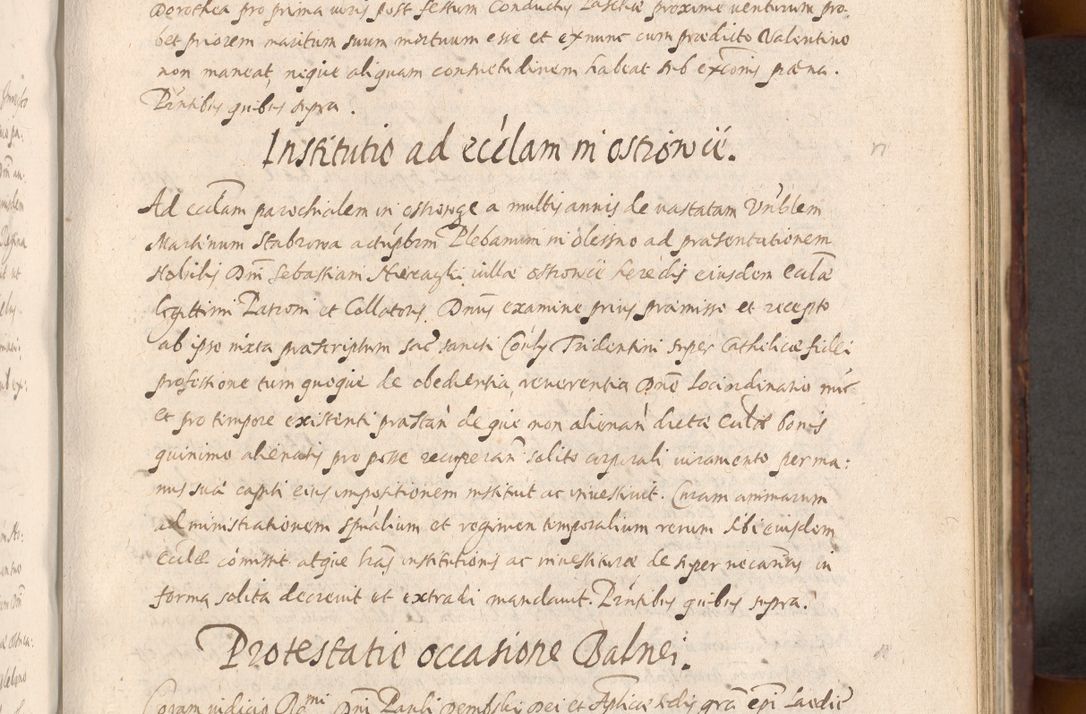 Dorothea pro prima iuris post festum Conductus Paschæ proxime venturum pro-
bet priorem maritum suum mortuum esse et ex nunc cum prædicto Valentino
non maneat, neque aliquam consuetudinem habeat sub excõnis pœna.
Pñtibus quibus supra.
Institutio ad ecclam in ostrowcè.
Ad ecclam parochialem in ostrowge a multis annis de vastatam Vnblem
Martinum Stabrowa actu pbrm Plebanum in olessno ad præsentationem
Nobilis Dñi Sebastiani villæ ostrowcè heredis eiusdem Ecclæ
legittimi Patroni et Collatoris. Dnus examine prius præmisso et recepto
ab ipso iuxta præscriptum sac sancti Concily Tridentini super Catholicæ fidei
professione tum quoque de obedientia, reverentia Dno Loci ordinario
et pro tempore existenti præstan de que non alienan dictæ Ecclæ bonis
quinimo alienatis pro posse recuperan solito corporali iuramento per ma:
nus suæ capiti eius impositionem instituit ac investivit. Curam animarum
administrationem spũalium et regimen temporalium rerum sibi eiusdem
Ecclæ cõmisit atque lras institutionis ac investituræ de super necarias in
forma solita decrevit et extradi mandavit. Pñtibus quibus supra.
Protestatio occasione Balnei.
Coram iudicio Rmi Dñi Pauli Dembski Dei et Aplicæ sedis grã Epi Laodic